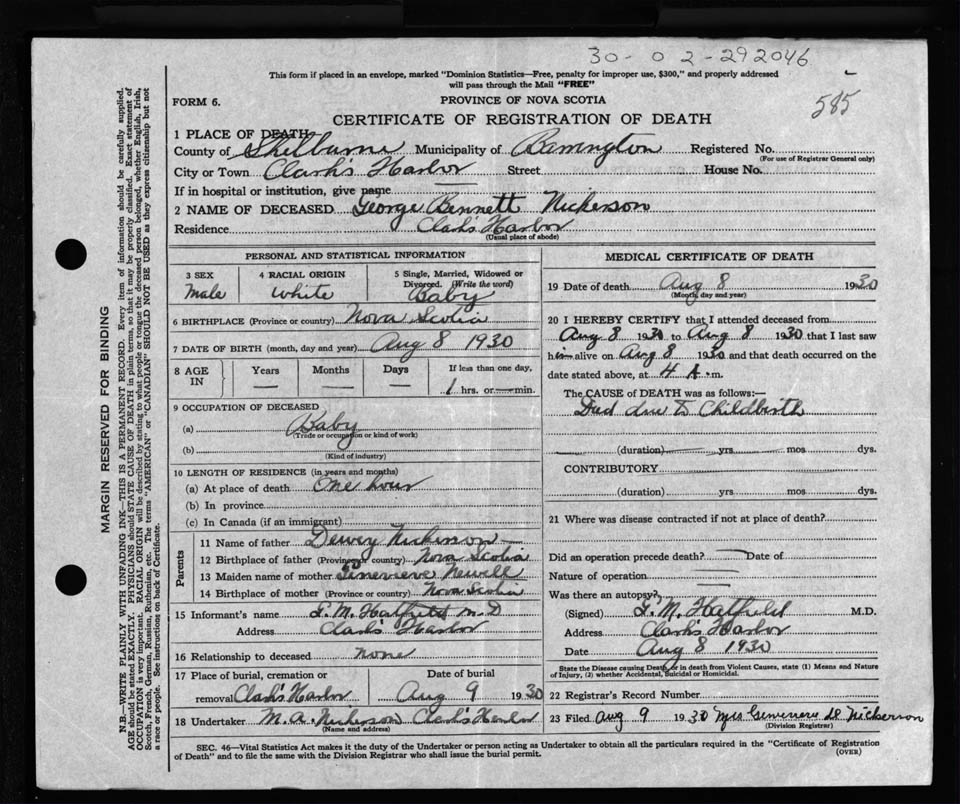 30-02-292046
585
This form if placed in an envelope, marked "Dominion Statistics—Free, penalty for improper use, $300," and properly addressed
will pass through the Mail "FREE"
FORM 6.
PROVINCE OF NOVA SCOTIA
CERTIFICATE OF REGISTRATION OF DEATH
1 PLACE OF DEATH
County of Shelburne Municipality of Barrington Registered No.
(For use of Registrar General only)
City or Town Clark's Harbor Street House No.
If in hospital or institution, give name
2 NAME OF DECEASED George Bennett Nickerson
Residence Clark's Harbor
(Usual place of abode)
PERSONAL AND STATISTICAL INFORMATION
3 SEX 4 RACIAL ORIGIN 5 Single, Married, Widowed or Divorced. (Write the word)
Male White Baby
6 BIRTHPLACE (Province or country) Nova Scotia
7 DATE OF BIRTH (month, day and year) Aug 8 1930
8 AGE IN Years Months Days If less than one day,
— — — 1 hrs. or — min.
9 OCCUPATION OF DECEASED
(a) Baby
(Trade or occupation or kind of work)
(b)
(Kind of industry)
10 LENGTH OF RESIDENCE (in years and months)
(a) At place of death One hour
(b) In province
(c) In Canada (if an immigrant)
Parents
11 Name of father Dewey Nickerson
12 Birthplace of father (Province or country) Nova Scotia
13 Maiden name of mother Genevieve Newell
14 Birthplace of mother (Province or country) Nova Scotia
15 Informant's name I. M. Hatfield M.D
Address Clark's Harbor
16 Relationship to deceased none
17 Place of burial, cremation or Date of burial
removal Clark's Harbor Aug 9 1930
18 Undertaker M. A. Nickerson Clark's Harbor
(Name and address)
MEDICAL CERTIFICATE OF DEATH
19 Date of death Aug 8 1930
(Month, day and year)
20 I HEREBY CERTIFY that I attended deceased from
Aug 8 1930 to Aug 8 1930 that I last saw
him alive on Aug 8 1930 and that death occurred on the
date stated above, at 4 A.m.
The CAUSE OF DEATH was as follows:—
Died due to Childbirth
(duration) yrs mos dys.
CONTRIBUTORY
(duration) yrs mos dys.
21 Where was disease contracted if not at place of death?
Did an operation precede death? — Date of
Nature of operation
Was there an autopsy?
(Signed) I. M. Hatfield M.D.
Address Clark's Harbor
Date Aug 8 1930
State the Disease causing Death, or in death from Violent Causes, state (1) Means and Nature
of Injury, (2) whether Accidental, Suicidal or Homicidal.
22 Registrar's Record Number
23 Filed Aug 9 1930 Mrs Genevieve D Nickerson
(Division Registrar)
SEC. 46—Vital Statistics Act makes it the duty of the Undertaker or person acting as Undertaker to obtain all the particulars required in the "Certificate of Registration
of Death" and to file the same with the Division Registrar who shall issue the burial permit.
(OVER)
MARGIN RESERVED FOR BINDING
N.B.—WRITE PLAINLY WITH UNFADING INK—THIS IS A PERMANENT RECORD. Every item of information should be carefully supplied.
AGE should be stated EXACTLY. PHYSICIANS should STATE CAUSE OF DEATH in plain terms, so that it may be properly classified. Exact statement of
OCCUPATION is very important. RACIAL ORIGIN will be described by stating to what people or tongue the deceased person belonged, whether English, Irish,
Scotch, French, German, Russian, Ruthenian, etc. The terms "AMERICAN" or "CANADIAN" SHOULD NOT BE USED as they express citizenship but not
a race or people. See instructions on back of Certificate.